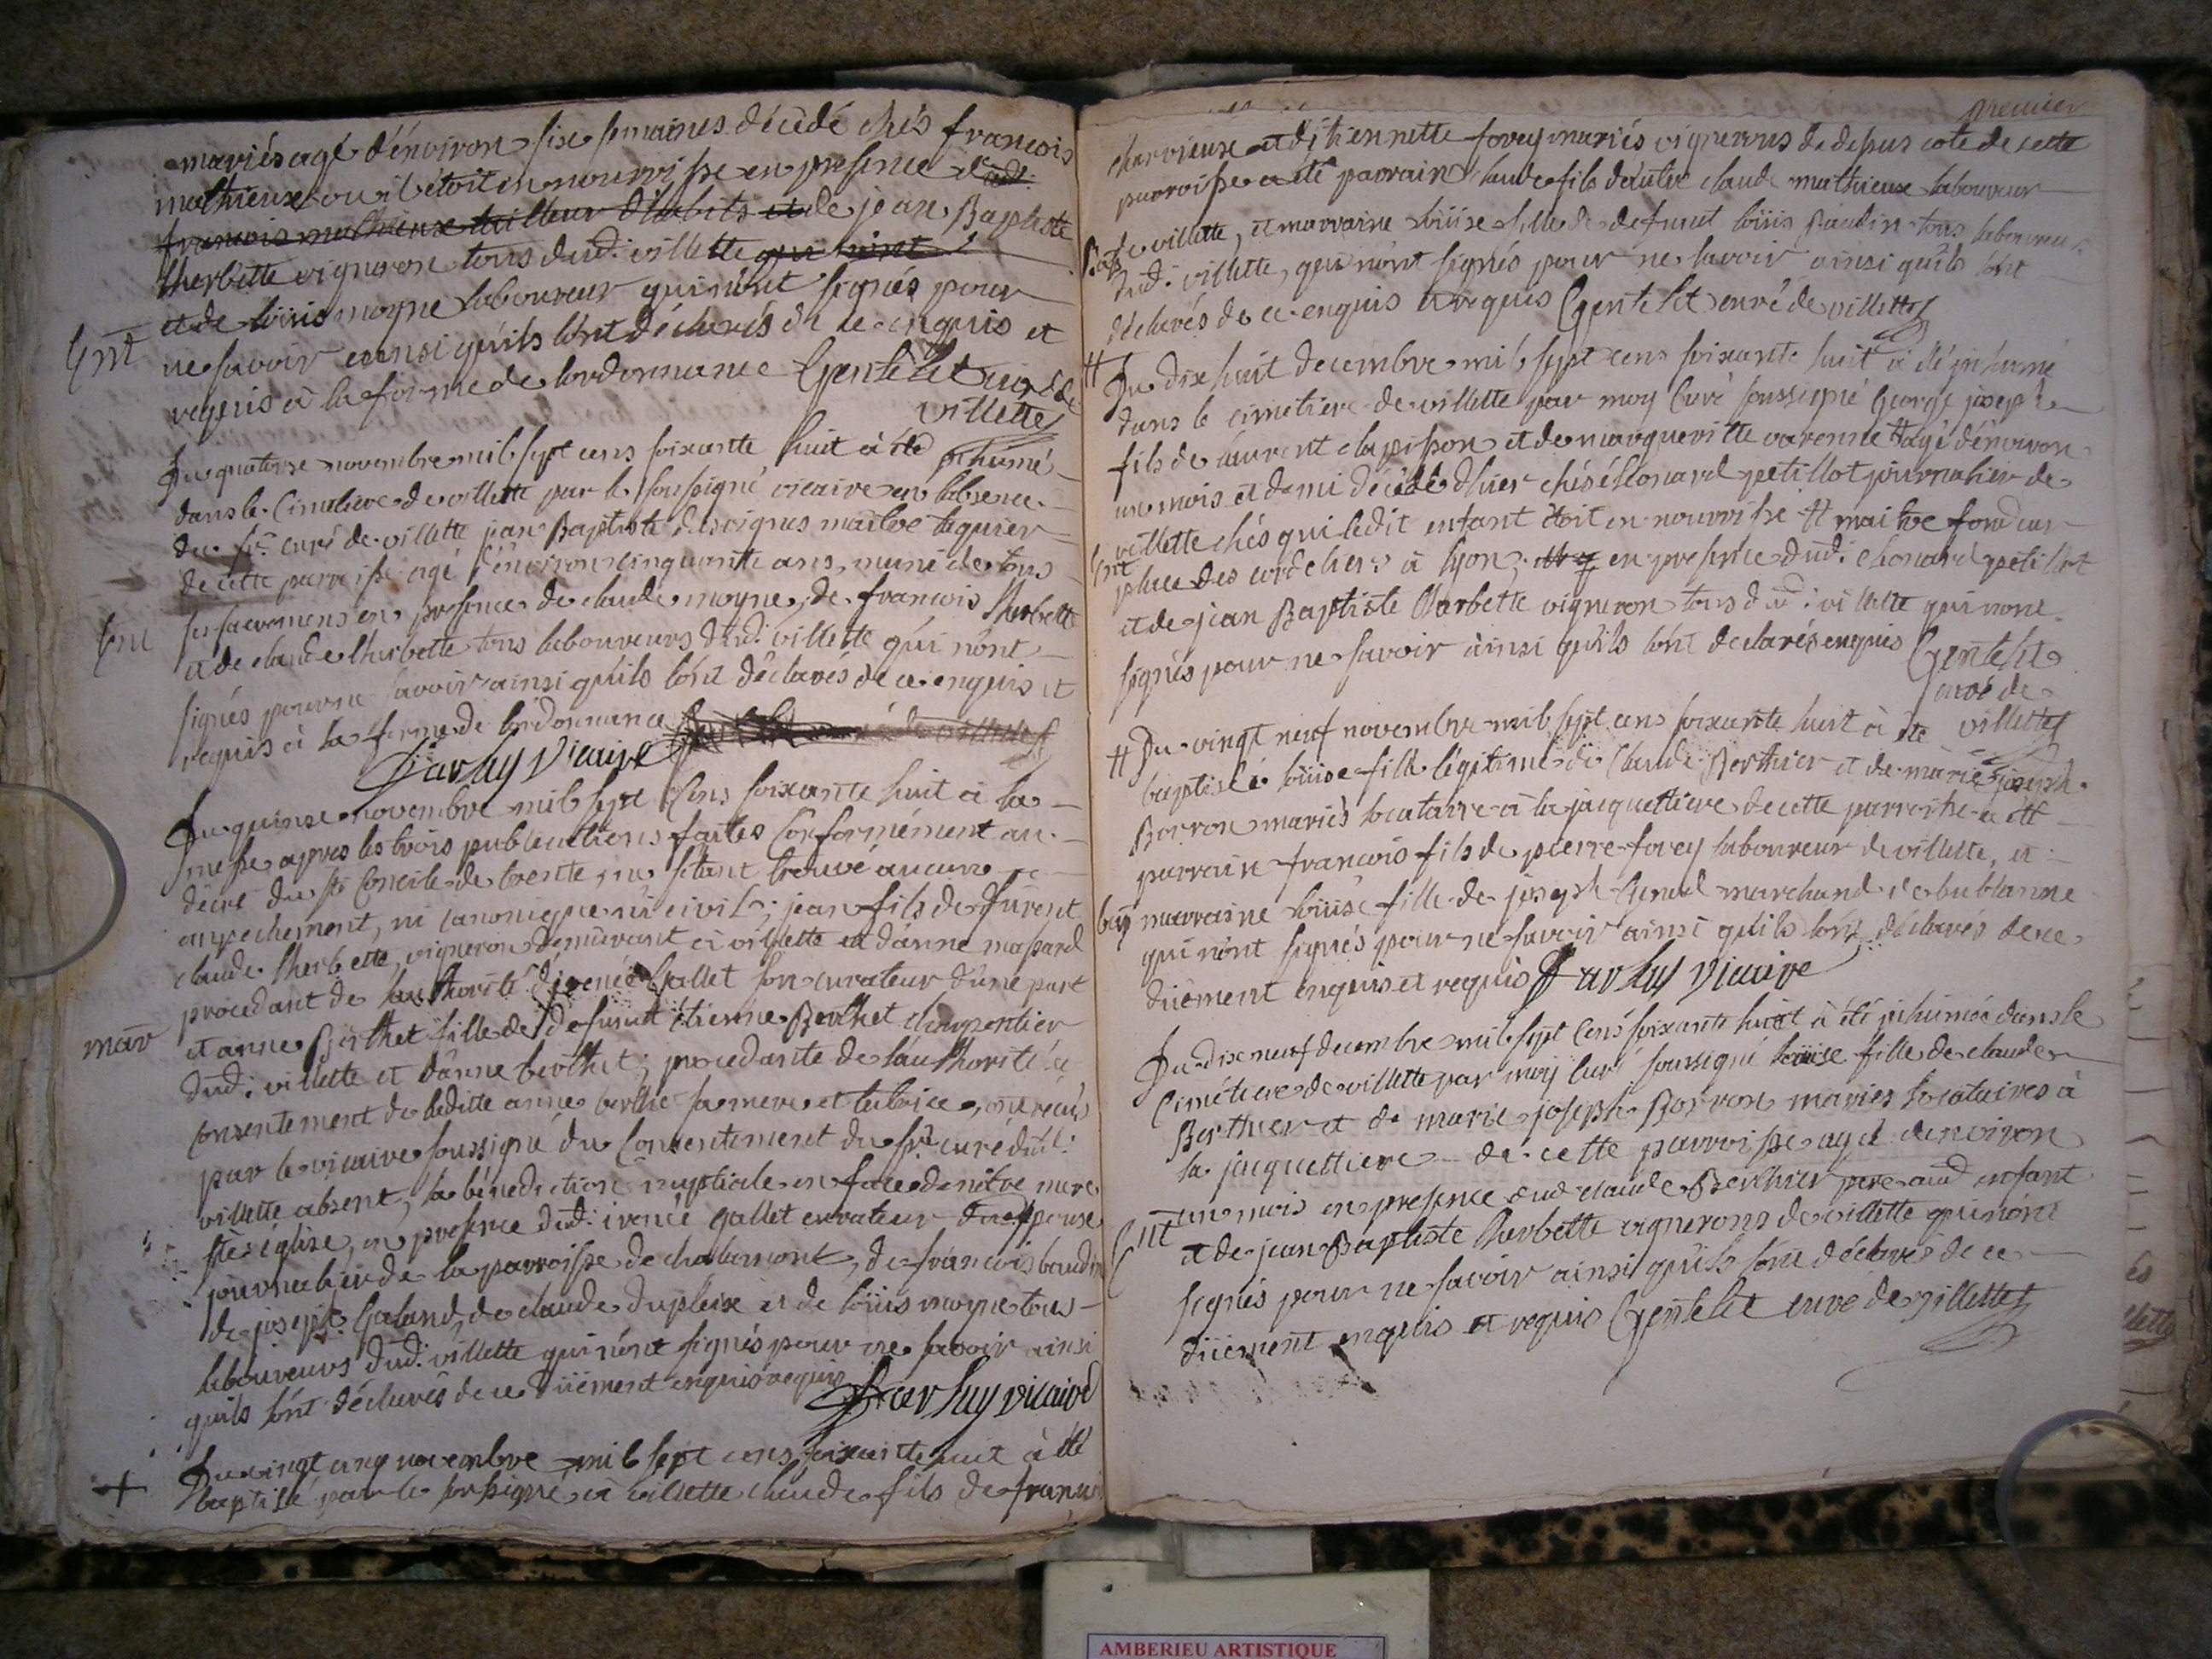 mariés agé dénviron six semaines décédé chés francois
mathieux ou il étoit en nourrisse en presence dud.
francois mathieux tailleur d'habits et de jean Baptiste
therbette vigneron tous dud. villette qui n'ont
et de loüis moyne laboureur qui n'ont signés pour
Ent
ne savoir ainsi qu'ils lónt déclarés de ce enquis et
requis à la forme de lordonnance Gentelet curé de
villette
Du quatorse novembre mil sept cens soixante huit à été inhumé
dans le Cimetiere de villette par le soussigné vicaire en labsence
du sr. curé de villette jean Baptiste desvignes maitre
de cette parroisse agé dénviron cinquante ans, muni de tous
Ent
ses sacremens en presence de claude moyne, de francois therbette
et de claude therbette tous laboureurs dud. villette qui nónt
signés pour ne savoir ainsi quils lónt déclarés de ce enquis et
requis à la forme de lordonnance
Darluy Vicaire
Du quinse novembre mil sept Cens soixante huit à la
messe apres les trois publications faites Conformément au
décré du st Concile de trente, ne sétant trouvé aucun
empechement, ni canonique ni civil; jean fils de
claude therbette, vigneron demeurant à villette et dánne massard
procedant de lauthorité dirénée Gallet son curateur dúne part
mar
et anne Berthet fille de defunt étienne Berthet charpentier
dud. villette et dánne berthet; procedante de láuthorité et
Consentement de laditte anne berthet sa mere et tutrice, ont reçus
par le vicaire soussigné du Consentement du sr. curé dud.
villette absent, la bénédiction nuptiale en face de nôtre mere
ste église, en presence dud. irenée gallet curateur
journalier de la parroisse de chalamont, de francois baudin
de joseph Galand, de claude dupleix et de loüis moyne tous
laboureurs dud. villette qui nónt signés pour ne savoir ainsi
quils lónt déclarés de ce düement enquis requis
Darluy vicaire
+ Du vingt cinq novembre mil sept cens soixante huit à été
baptisé par le soussigné à villette claude fils de francois
premier
charvieux et détiennette forey mariés vignerons de dessus cote de cette
parroisse a été parrain claude fils dáutre claude mathieux laboureur
Bap
de villette, et marraine loüise fille de defunt loüis Baudin tous laboureurs
dud. villette, qui nónt signés pour ne savoir ainsi quils lónt
déclarés de ce enquis et requis Gentelet curé de villette
Du dix huit decembre mil sept cens soixante huit à été inhumé
dans le cimetiere de villette par moy Curé soussigné George joseph
fils de laurent clapisson et de marguerite varenne # agé dénviron
un mois et demi décédé dhier chés éléonard petillot journalier de
villette chés qui ledit enfant étoit en nourrisse # maitre fondeur
Ent
place des cordeliers à lyon, en presence dud. éléonard petillot
et de jean Baptiste therbette vigneron tous dud. villette qui nont
signés pour ne savoir ainsi quils lónt declarés enquis Gentelet
curé de
villette
# Du vingt neuf novembre mil sept cens soixante huit à été
baptisée loüise fille légitime de Claude Berthier et de marie joseph
Borron mariés locataire à la jacquettiere de cette parroisse a été
parrain francois fils de pierre forey laboureur de villette, et
bap
marraine loüise fille de joseph marchand de bublanne
qui nónt signés pour ne savoir ainsi quils lónt déclarés de ce
düement enquis et requis Darluy Vicaire
Du dix neuf decembre mil sept Cens soixante huit à été inhumée dans le
Cimétiere de villette par moy Curé soussigné loüise fille de claude
Berthier et de marie joseph Borron mariés locataires à
la jacquettiere de cette parroisse agée denviron
un mois en presence dud claude Berthier pere aud enfant
Ent
et de jean Baptiste therbette vignerons de villette qui nónt
signés pour ne savoir ainsi quils lónt déclarés de ce
düement enquis et requis Gentelet curé de villette
AMBERIEU ARTISTIQUE